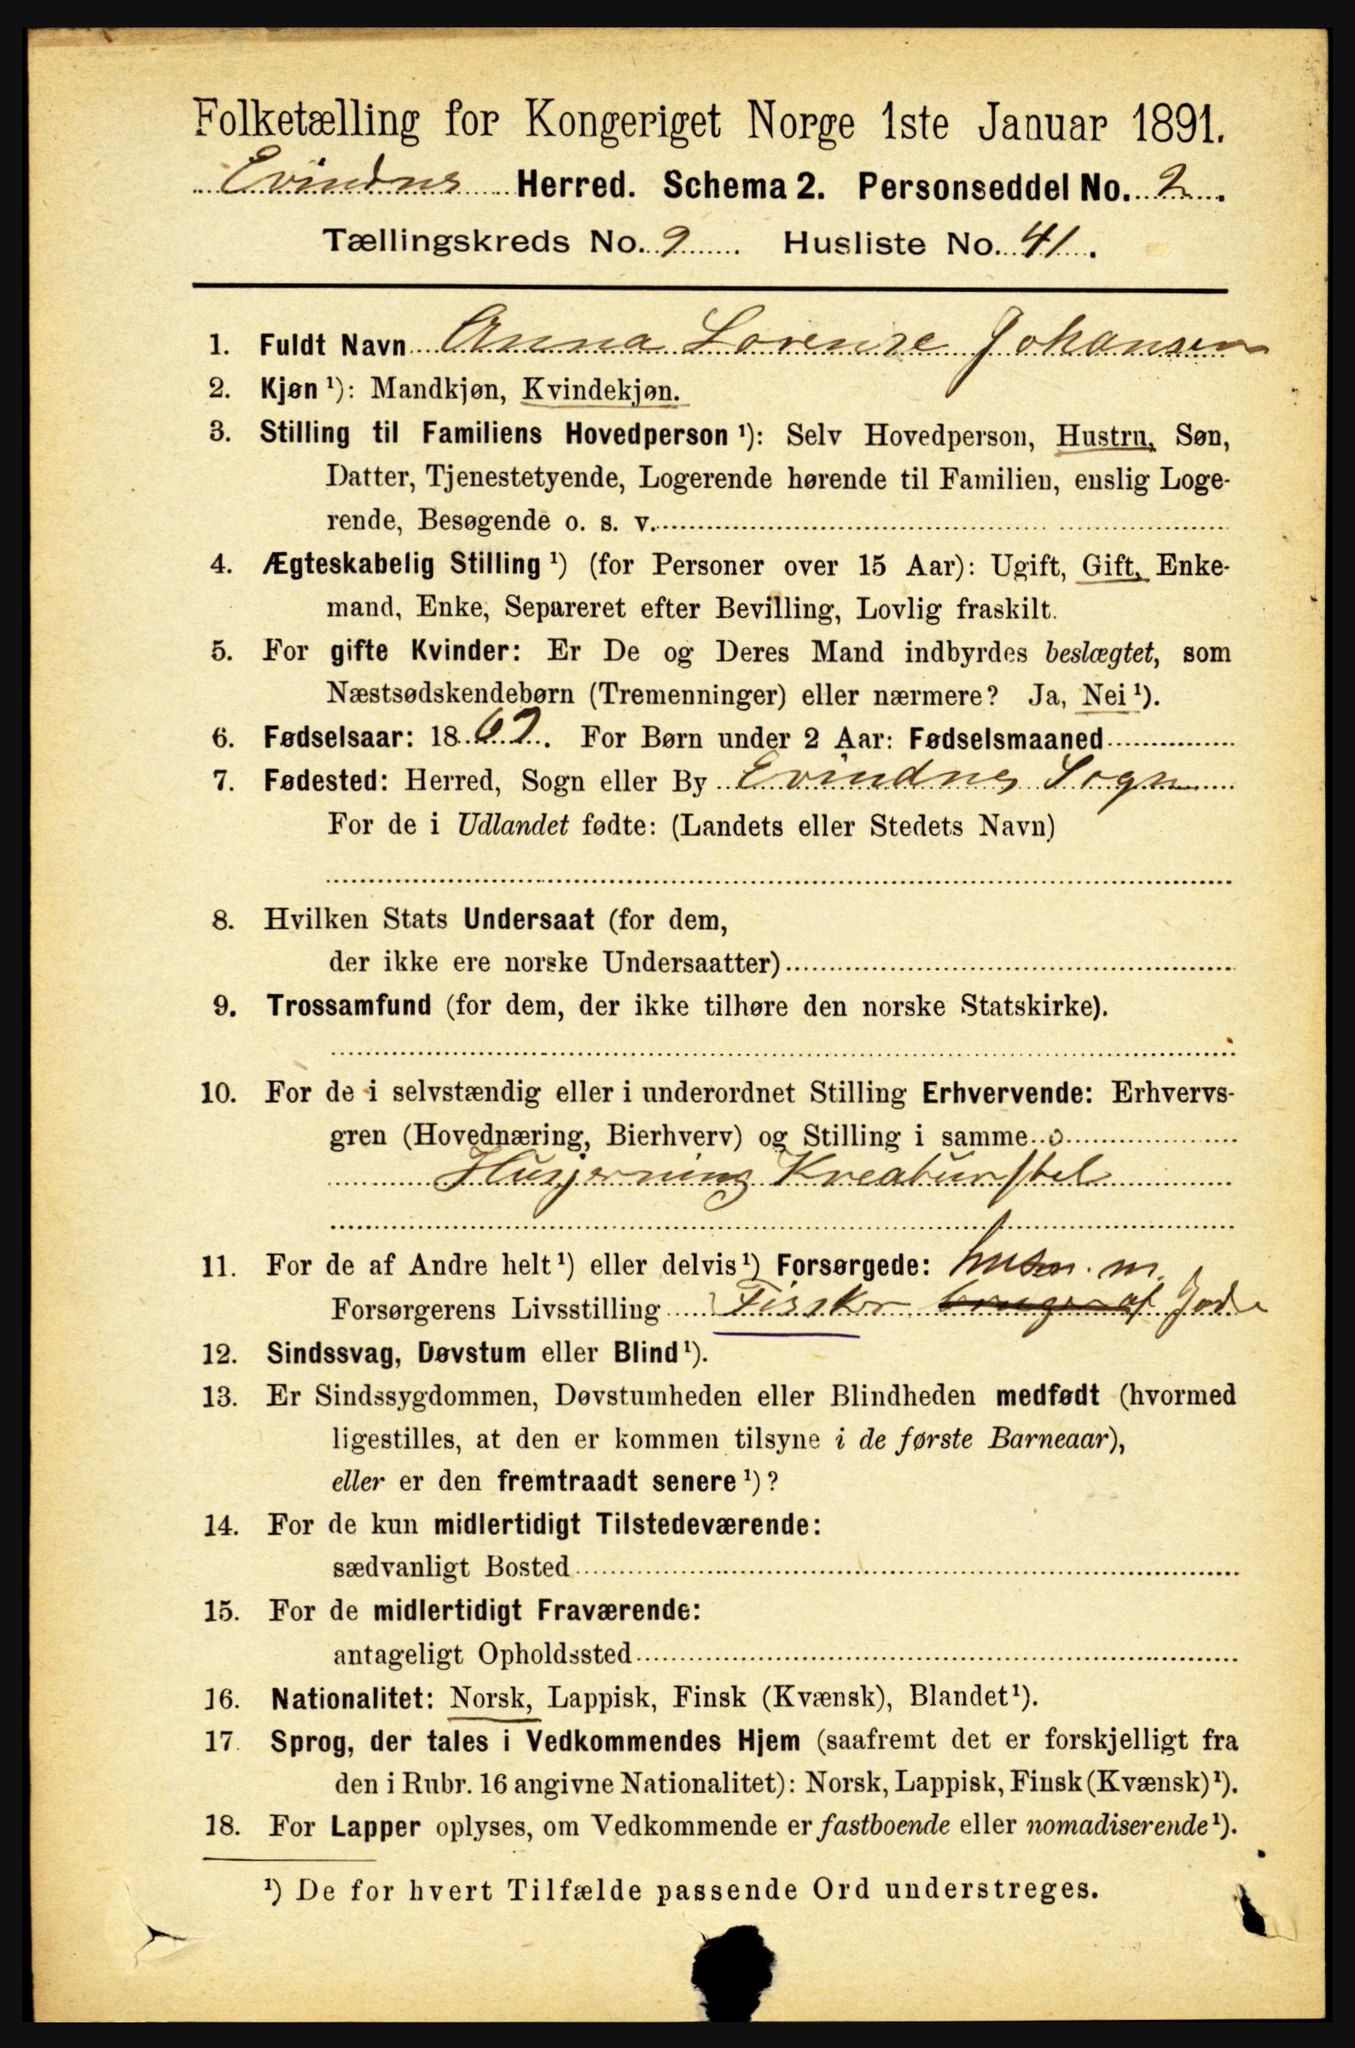 Folketælling for Kongeriget Norge 1ste Januar 1891.
Evindnes Herred. Schema 2. Personseddel No. 2.
Tællingskreds No. 9 Husliste No. 41.
1. Fuldt Navn Anna Lorense Johansen
2. Kjøn ¹): Mandkjøn, Kvindekjøn.
3. Stilling til Familiens Hovedperson ¹): Selv Hovedperson, Hustru, Søn,
Datter, Tjenestetyende, Logerende hørende til Familien, enslig Loge-
rende, Besøgende o. s. v.
4. Ægteskabelig Stilling ¹) (for Personer over 15 Aar): Ugift, Gift, Enke-
mand, Enke, Separeret efter Bevilling, Lovlig fraskilt.
5. For gifte Kvinder: Er De og Deres Mand indbyrdes beslægtet, som
Næstsødskendebørn (Tremenninger) eller nærmere? Ja, Nei ¹).
6. Fødselsaar: 1862. For Børn under 2 Aar: Fødselsmaaned
7. Fødested: Herred, Sogn eller By Evindnes Sogn
For de i Udlandet fødte: (Landets eller Stedets Navn)
8. Hvilken Stats Undersaat (for dem,
der ikke ere norske Undersaatter)
9. Trossamfund (for dem, der ikke tilhøre den norske Statskirke).
10. For de i selvstændig eller i underordnet Stilling Erhvervende: Erhvervs-
gren (Hovednæring, Bierhverv) og Stilling i samme
Husjerning Kreaturstel
11. For de af Andre helt ¹) eller delvis ¹) Forsørgede: husm. m.
Forsørgerens Livsstilling Fisker bruger af Jord
12. Sindssvag, Døvstum eller Blind ¹).
13. Er Sindssygdommen, Døvstumheden eller Blindheden medfødt (hvormed
ligestilles, at den er kommen tilsyne i de første Barneaar),
eller er den fremtraadt senere ¹)?
14. For de kun midlertidigt Tilstedeværende:
sædvanligt Bosted
15. For de midlertidigt Fraværende:
antageligt Opholdssted
16. Nationalitet: Norsk, Lappisk, Finsk (Kvænsk), Blandet ¹).
17. Sprog, der tales i Vedkommendes Hjem (saafremt det er forskjelligt fra
den i Rubr. 16 angivne Nationalitet): Norsk, Lappisk, Finsk (Kvænsk) ¹).
18. For Lapper oplyses, om Vedkommende er fastboende eller nomadiserende ¹).
¹) De for hvert Tilfælde passende Ord understreges.